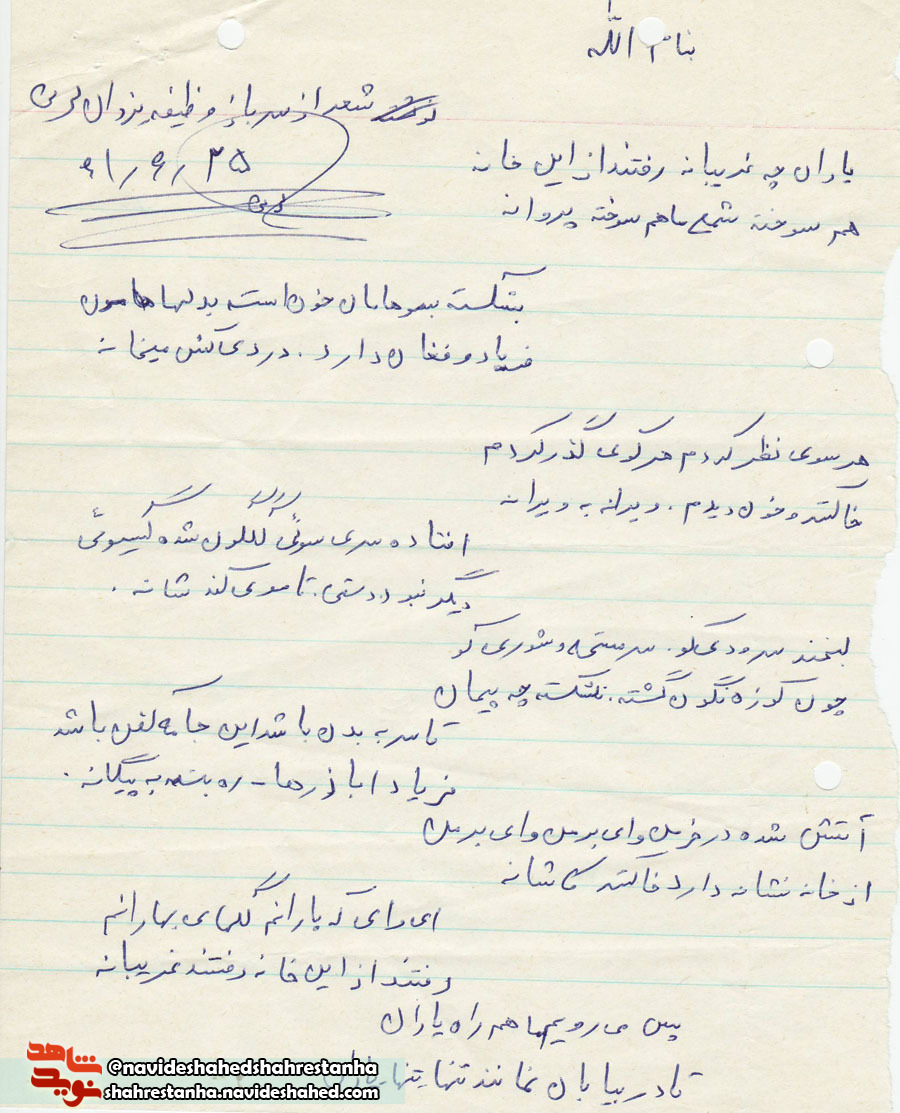 بنام الله
شعر از سرباز وظیفه یزدان کرمی
۶۱/۹/۲۵
یاران چه غریبانه رفتند از این خانه
هم سوخته شمع ما هم سوخته پروانه
بشکسته سبوهامان خون است به دلهامون
فریاد و فغان دارد . دردی کش میخانه
هر سوی نظر کردم هر کوی گذر کردم
خاکستر و خون دیدم . ویرانه به ویرانه
افتاده سری سوئی گلگون شده گیسوئی
دیگر نبود دستی . تا موی کند شانه .
لبخند سرودی کو . سرمستی و شوری کو
چون کوزه نگون گشته . نشکسته چه پیمان
تا سر به بدن باشد این جامه کفن باشد
فریاد اباذرها - ره بسته به بیگانه .
آتش شده در خرمن وای بر من وای بر من
از خانه نشانه دارد خاکستر کاشانه
ای وای که یارانم گلهای بهارانم
رفتند از این خانه رفتند غریبانه
پس می رویم ما هم راه یاران
تا در بیابان نمانند تنها تنها یاران
شاهد
نوید
@navideshahedshahrestanha
shahrestanha.navideshahed.com